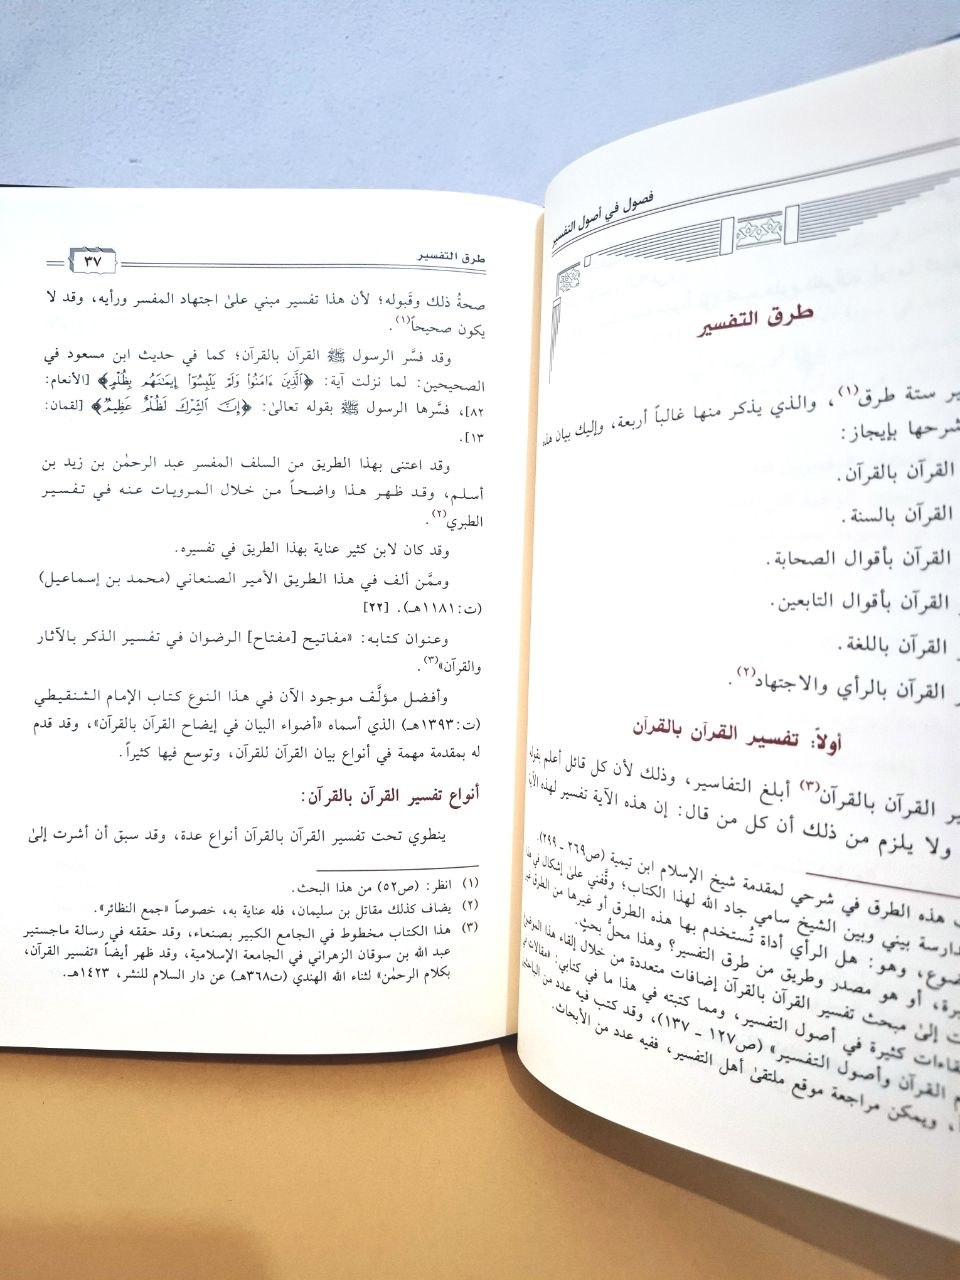 فصول في أصول التفسير
طرق التفسير
ستة طرق(١)، والذي يذكر منها غالباً أربعة، وإليك بيان هذه
شرحها بإيجاز:
القرآن بالقرآن.
القرآن بالسنة.
القرآن بأقوال الصحابة.
القرآن بأقوال التابعين.
القرآن باللغة.
القرآن بالرأي والاجتهاد(٢).
أولاً: تفسير القرآن بالقرآن
القرآن بالقرآن(٣) أبلغ التفاسير، وذلك لأن كل قائل أعلم بقوله
ولا يلزم من ذلك أن كل من قال: إن هذه الآية تفسير لهذه الآية
هذه الطرق في شرحي لمقدمة شيخ الإسلام ابن تيمية (ص٢٦٩ ـ ٢٩٩).
بيني وبين الشيخ سامي جاد الله لهذا الكتاب؛ وقَّفني علىٰ إشكال في هذا
وهو: هل الرأي أداة تُستخدم بها هذه الطرق أو غيرها من الطرق
أو هو مصدر وطريق من طرق التفسير؟ وهذا محلُّ بحثٍ.
إلىٰ مبحث تفسير القرآن بالقرآن إضافات متعددة من خلال إلقاء هذا الموضوع
كثيرة في أصول التفسير، ومما كتبته في هذا ما في كتابي: «مقالات
القرآن وأصول التفسير» (ص١٢٧ ـ ١٣٧)، وقد كتب فيه عدد من
ويمكن مراجعة موقع ملتقىٰ أهل التفسير، ففيه عدد من الأبحاث.
طرق التفسير
٣٧
صحةُ ذلك وقَبوله؛ لأن هذا تفسير مبني علىٰ اجتهاد المفسر ورأيه، وقد لا
يكون صحيحاً(١).
وقد فسَّر الرسول ﷺ القرآن بالقرآن؛ كما في حديث ابن مسعود في
الصحيحين: لما نزلت آية: ﴿الَّذِينَ ءَامَنُوا وَلَمْ يَلْبِسُوٓا إِيمَٰنَهُم بِظُلْمٍ﴾ [الأنعام:
٨٢]، فسَّرها الرسول ﷺ بقوله تعالىٰ: ﴿إِنَّ الشِّرْكَ لَظُلْمٌ عَظِيمٌ﴾ [لقمان:
١٣].
وقد اعتنى بهذا الطريق من السلف المفسر عبد الرحمٰن بن زيد بن
أسلم، وقد ظهر هذا واضحاً من خلال المرويات عنه في تفسير
الطبري(٢).
وقد كان لابن كثير عناية بهذا الطريق في تفسيره.
وممَّن ألف في هذا الطريق الأمير الصنعاني (محمد بن إسماعيل)
(ت:١١٨١هـ). [٢٢]
وعنوان كتابه: «مفاتيح [مفتاح] الرضوان في تفسير الذكر بالآثار
والقرآن»(٣).
وأفضل مؤلَّف موجود الآن في هذا النوع كتاب الإمام الشنقيطي
(ت:١٣٩٣هـ) الذي أسماه «أضواء البيان في إيضاح القرآن بالقرآن»، وقد قدم
له بمقدمة مهمة في أنواع بيان القرآن للقرآن، وتوسع فيها كثيراً.
أنواع تفسير القرآن بالقرآن:
ينطوي تحت تفسير القرآن بالقرآن أنواع عدة، وقد سبق أن أشرت إلىٰ
(١) انظر: (ص٥٢) من هذا البحث.
(٢) يضاف كذلك مقاتل بن سليمان، فله عناية به، خصوصاً «جمع النظائر».
(٣) هذا الكتاب مخطوط في الجامع الكبير بصنعاء، وقد حققه في رسالة ماجستير
عبد الله بن سوقان الزهراني في الجامعة الإسلامية، وقد ظهر أيضاً «تفسير القرآن،
بكلام الرحمٰن» لثناء الله الهندي (ت٣٦٨هـ) عن دار السلام للنشر، ١٤٢٣هـ.